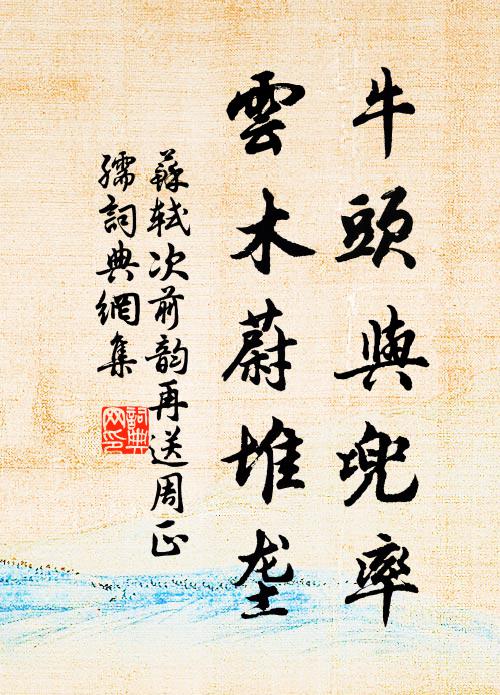 牛頭與兜率
雲木蔚堆垄
蘇軾次前韵再送周正
孺詞典網集
詞典
网印